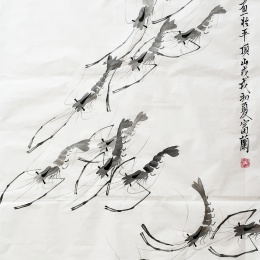 画於平顶山戊戌初夏富兰